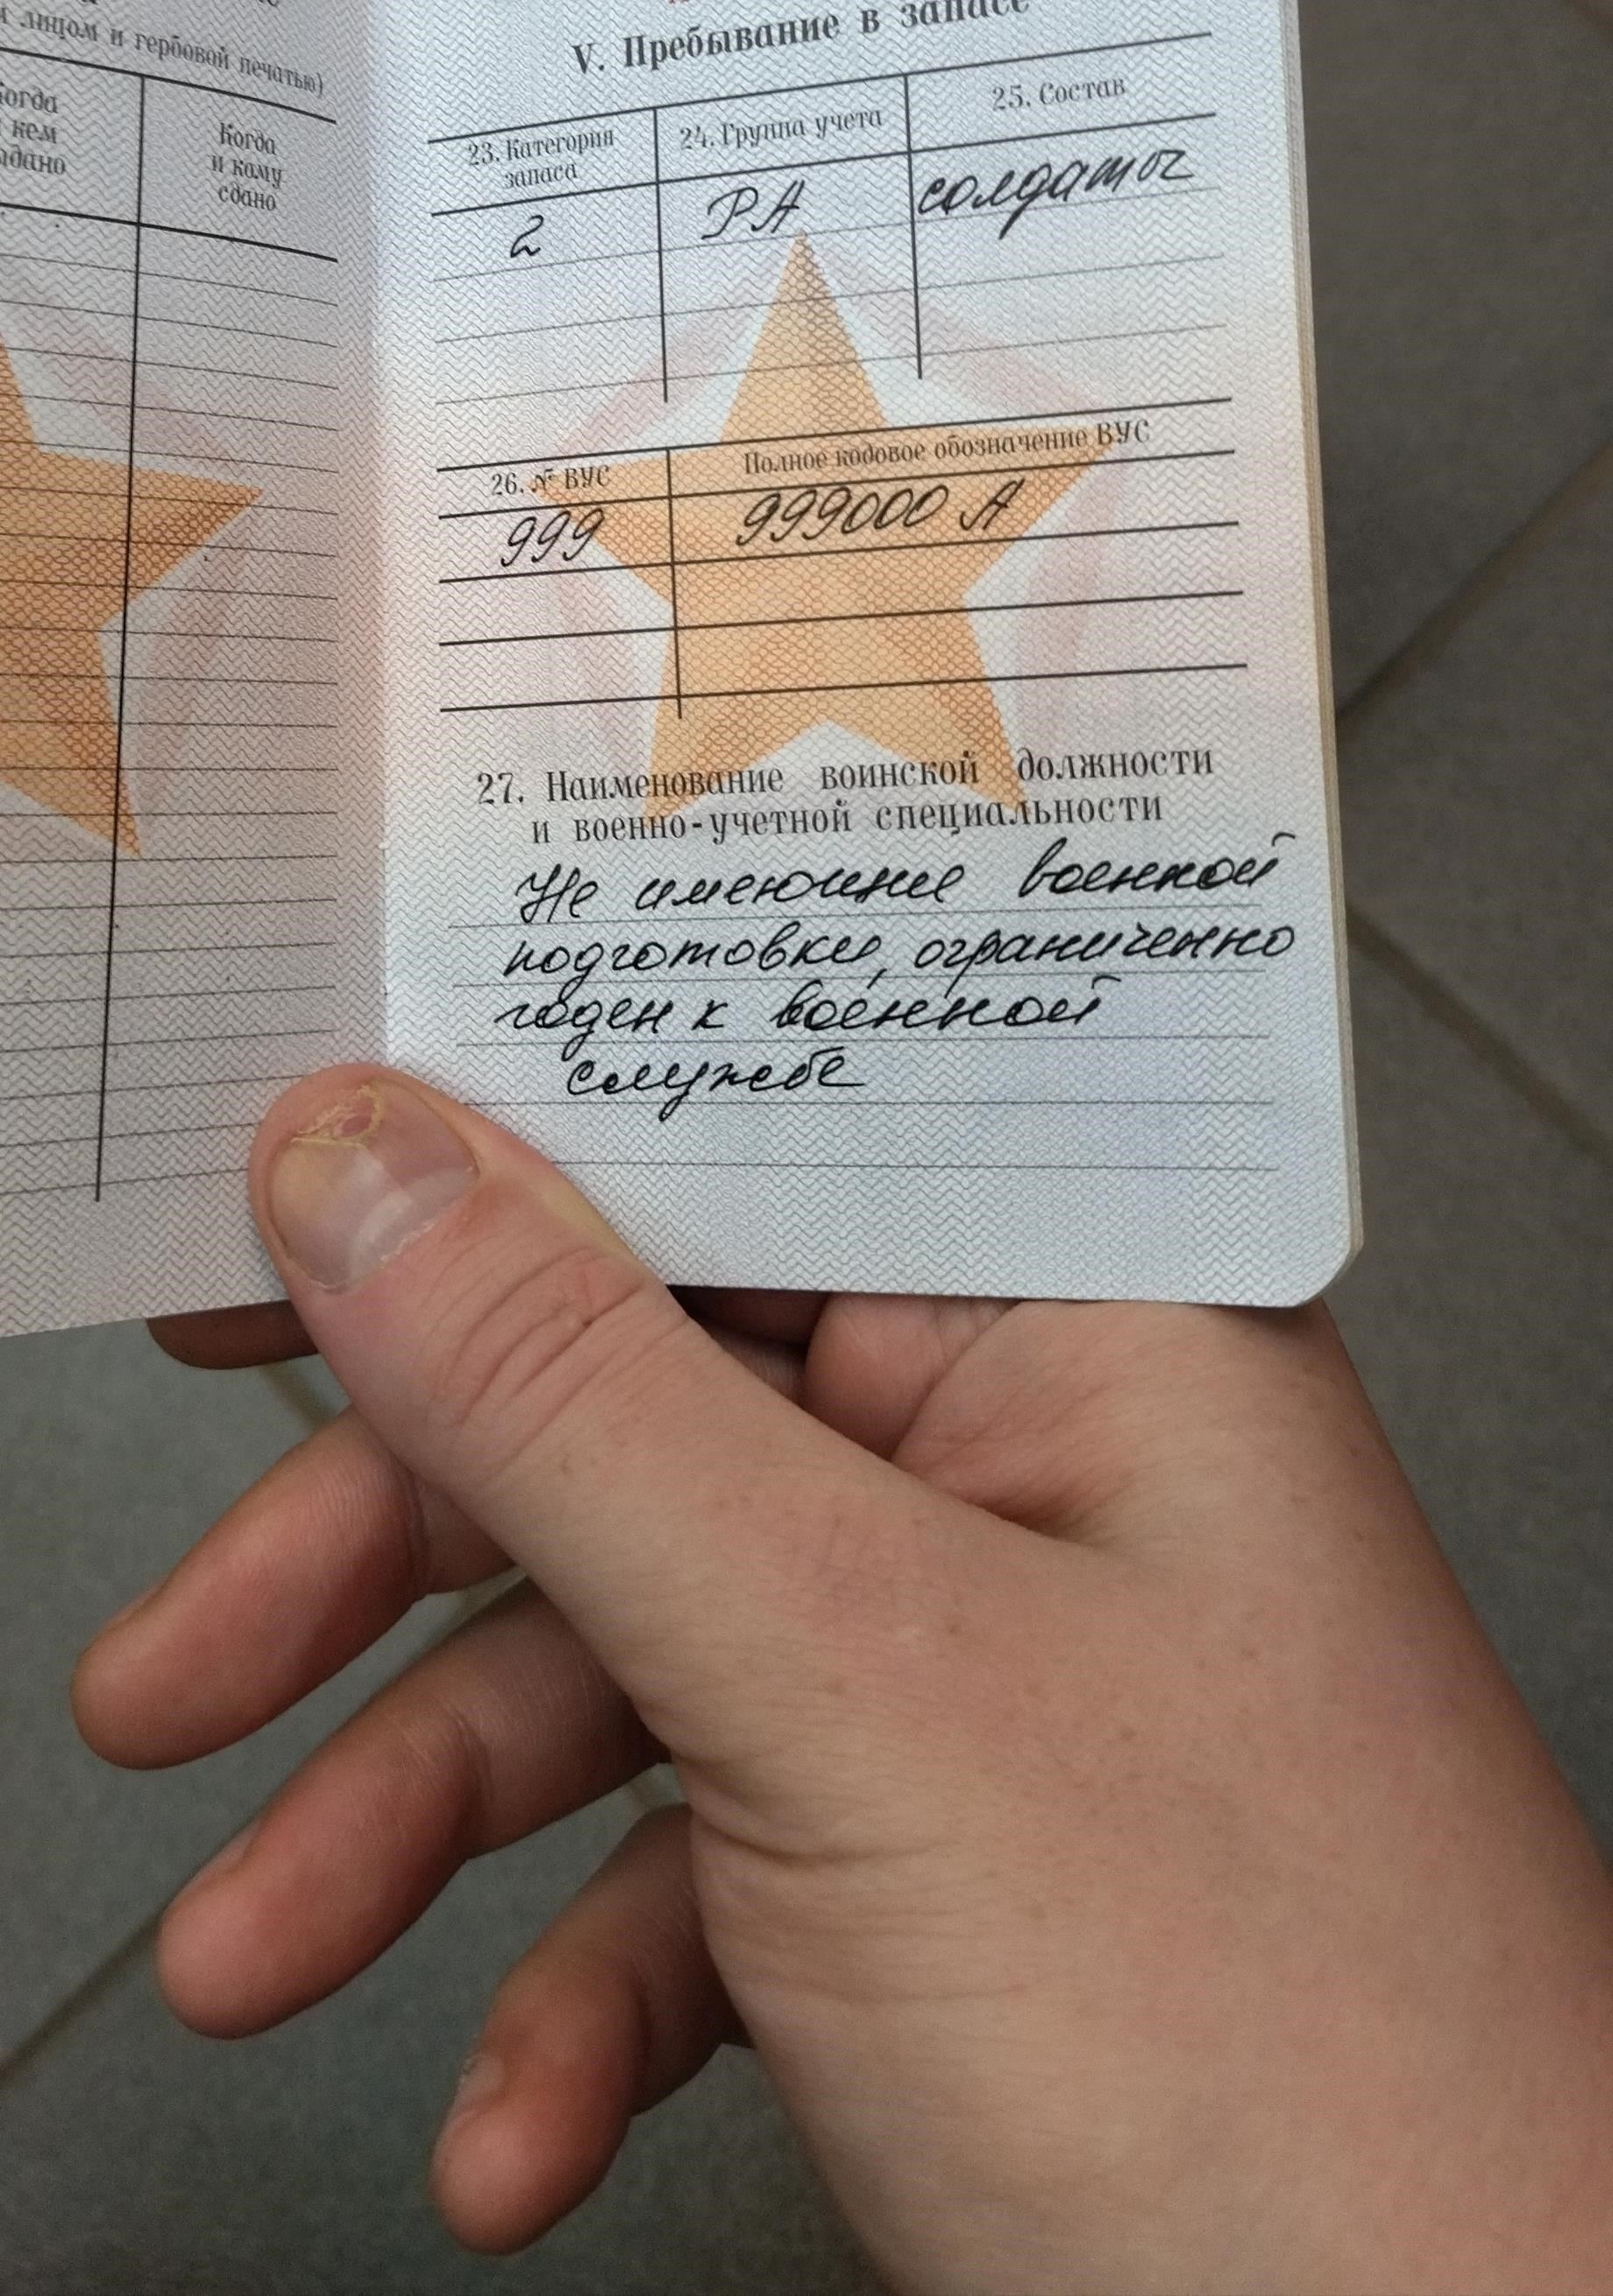 лицом и гербовой печатью)
кем
Когда
и кому
сдано
V. Пребывание в запасе
23. Категория
запаса
24. Группа учета
25. Состав
2
РА
солдаты
26. № ВУС
Полное кодовое обозначение ВУС
999
999000 А
27. Наименование воинской должности
и военно-учетной специальности
Не имеющие военной
подготовки, ограниченно
годен к военной
службе